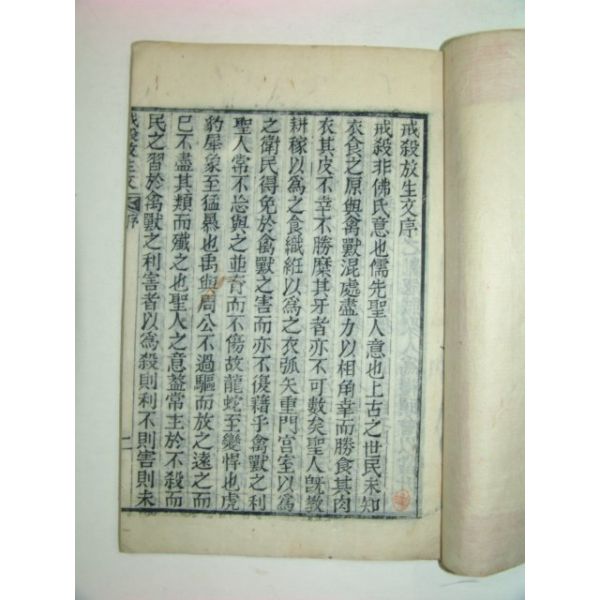 戒殺放生文序
戒殺非佛氏意也儒先聖人意也上古之世民未知
衣食之原與禽獸混處盡力以相角幸而勝食其肉
衣其皮不幸不勝糜其牙者亦不可數矣聖人旣敎
耕稼以爲之食織絍以爲之衣弧矢重門宮室以爲
之衛民得免於禽獸之害而亦不復藉乎禽獸之利
聖人常不忍與之並育而不傷故龍蛇至變悍也虎
豹犀象至猛暴也禹與周公不過驅而放之遠之而
已不盡其類而殲之也聖人之意葢常主於不殺而
民之習於禽獸之利害者以爲殺則利不則害則未
戒殺放生文 序 一